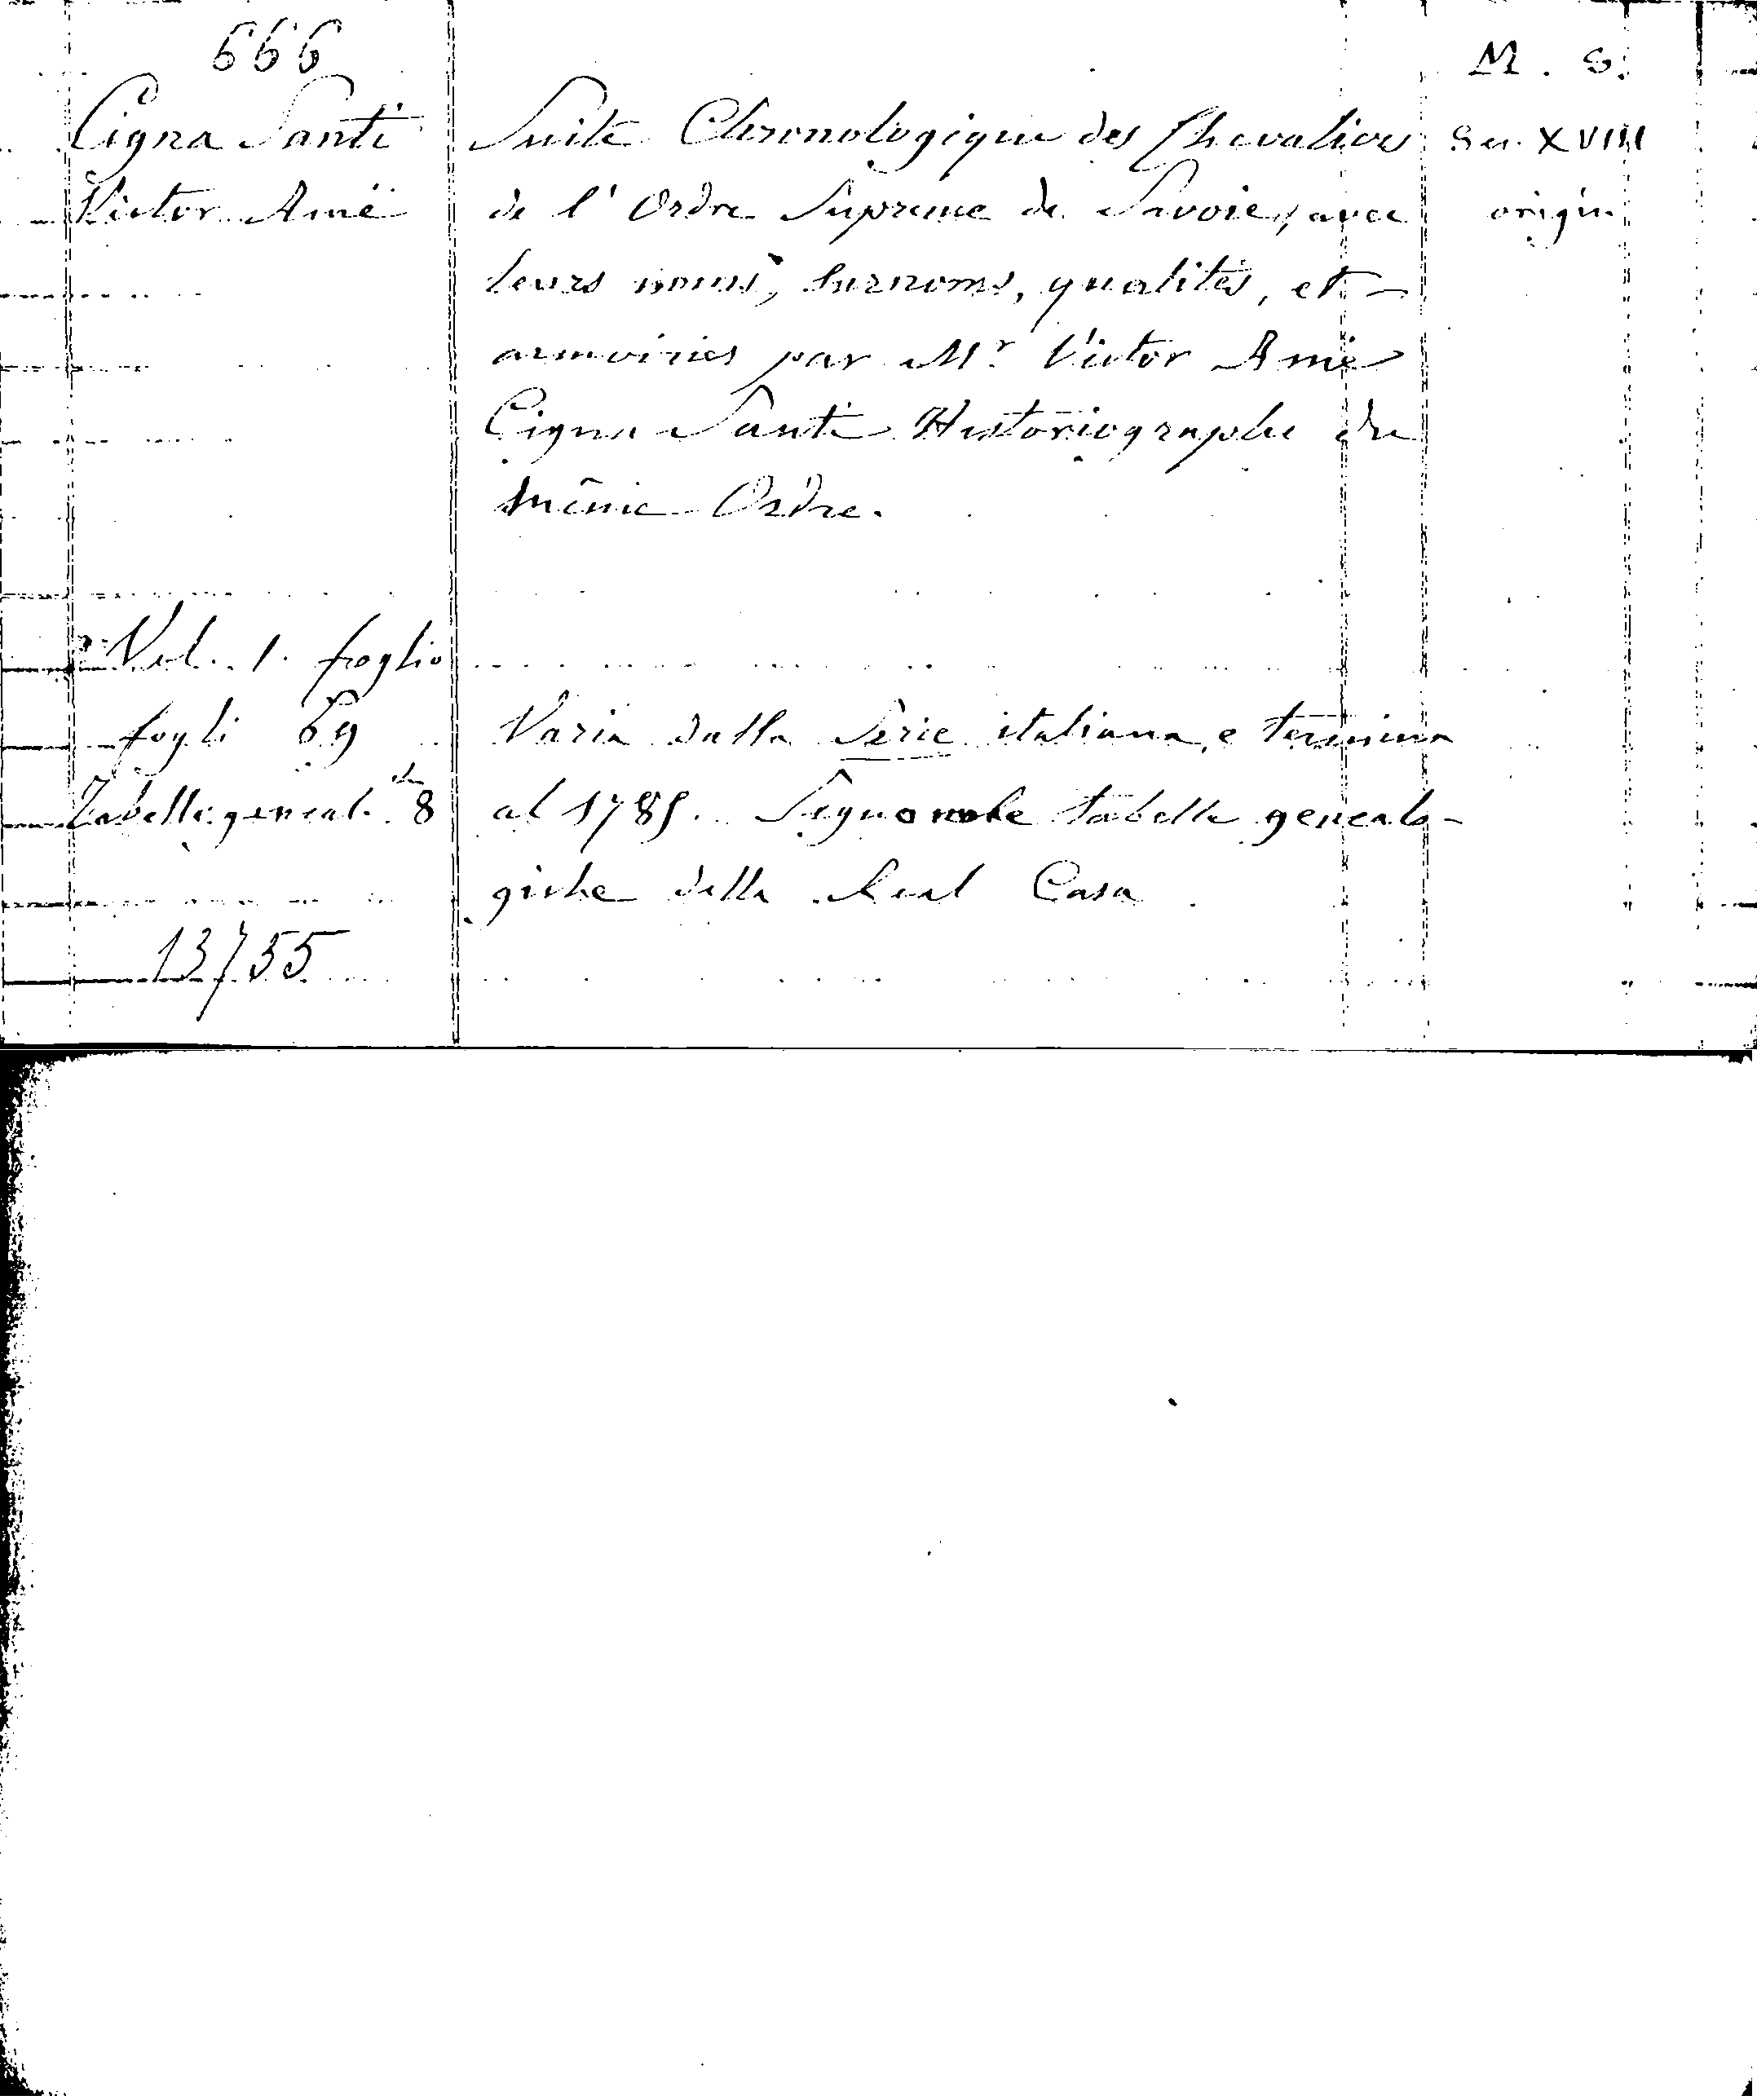 666
M. S.
Cigna Santi
Victor Amé
Suite Chronologique des Chevaliers
de l'Ordre Supreme de Savoie, avec
leurs noms, surnoms, qualités, et
armoiries par Mr. Victor Amé
Cigna Santi Historiographe du
même Ordre.
Sec. XVIII
origin.
Vol. 1. foglio
fogli 69
Tabelle geneal. 8
13755
Varia dalla Serie italiana, e termina
al 1785. Seguono le tabelle genealo-
giche della Real Casa